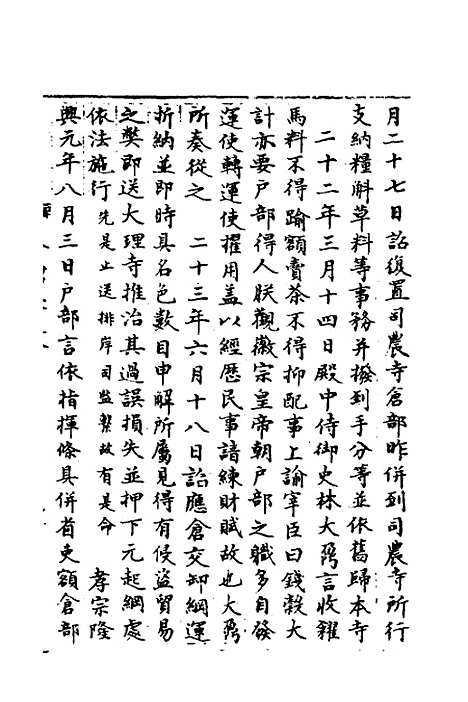 月二十七日詔復置司農寺倉部昨併到司農寺所行
支納糧斛草料等事務并撥到手分等並依舊歸本寺
二十二年三月十四日殿中侍御史林大鼐言收糴
馬料不得踰額賣茶不得抑配事上諭宰臣曰錢穀大
計亦要戶部得人朕觀徽宗皇帝朝戶部之職多自發
運使轉運使擢用盖以經歷民事諳練財賦故也大鼐
所奏從之　二十三年六月十八日詔應倉交卸綱運
折納並即時具名色數目申解所屬見得有侵盜貿易
之弊即送大理寺推治其過誤損失並押下元起綱處
依法施行先是止送排岸司監繫故有是命　孝宗隆
興元年八月三日戶部言依指揮條具併省吏額倉部